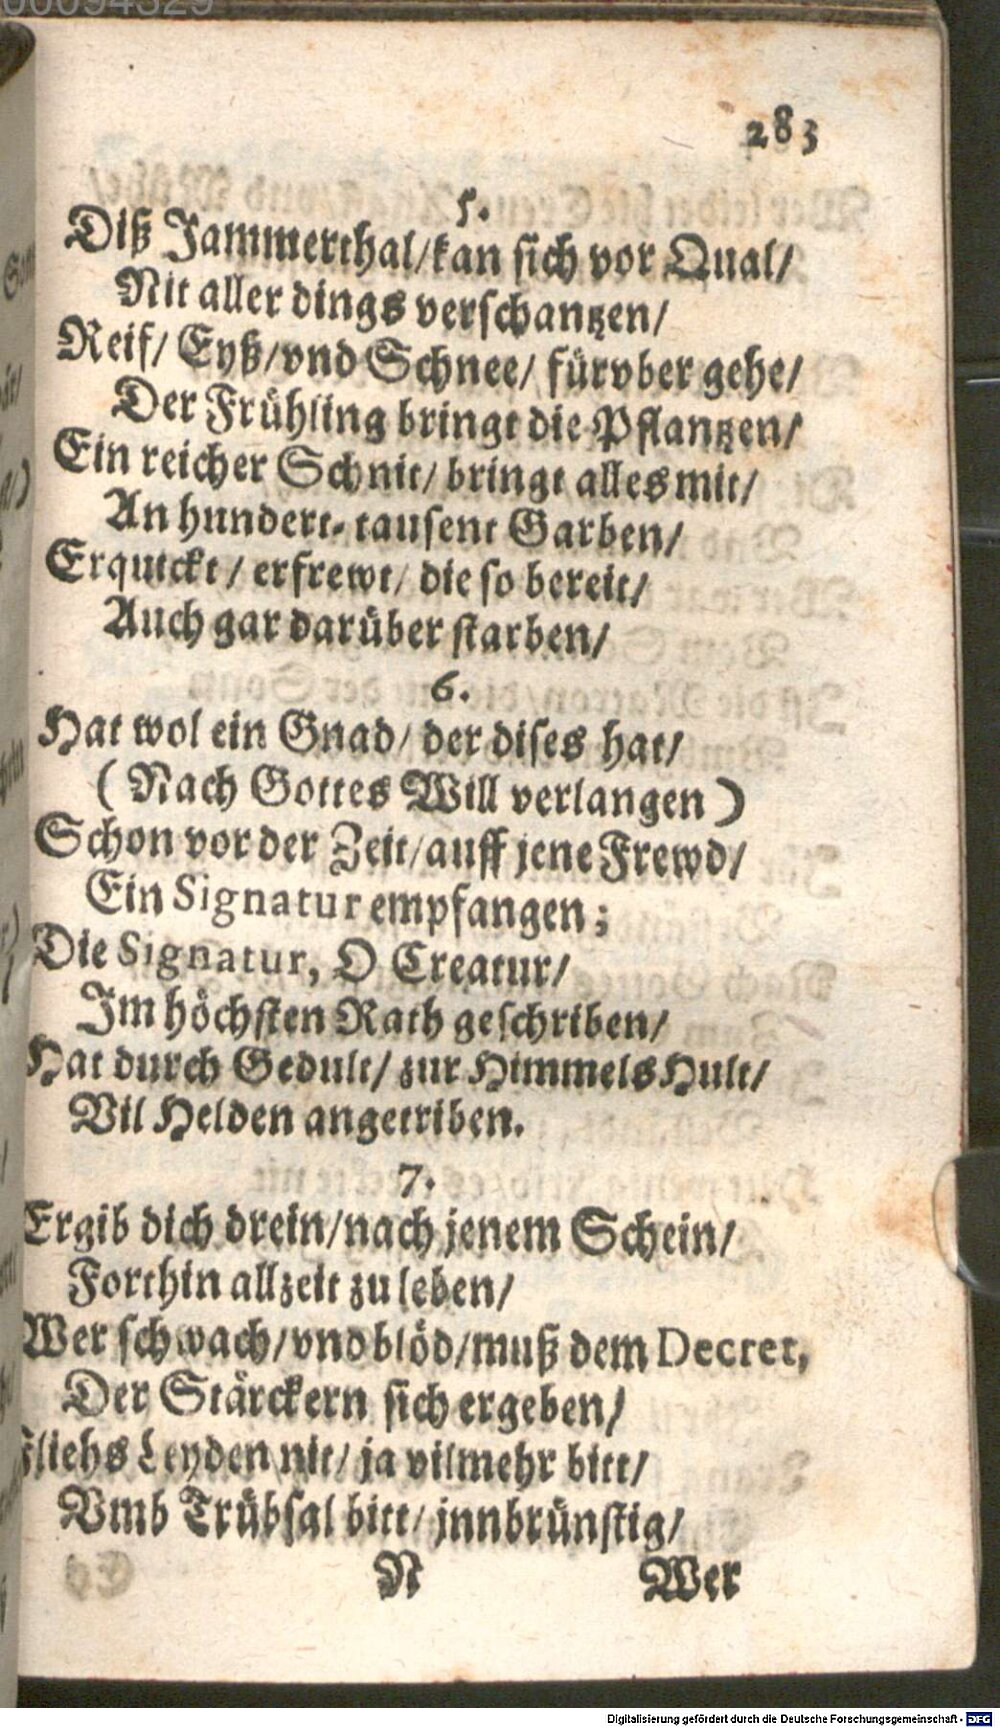 00094329
283
5.
Diß Jammerthal/kan sich vor Qual/
Nit aller dings verschantzen/
Reif/ Eyß/vnd Schnee/ fürvber gehe/
Der Frühling bringt die Pflantzen/
Ein reicher Schnit/ bringt alles mit/
An hundert-tausent Garben/
Erquickt/ erfrewt/ die so bereit/
Auch gar darüber starben/
6.
Hat wol ein Gnad/ der dises hat/
(Nach Gottes Will verlangen)
Schon vor der Zeit/auff jene Frewd/
Ein Signatur empfangen;
Die Signatur, O Creatur/
Im höchsten Rath geschriben/
Hat durch Gedult/ zur Himmels Hult/
Vil Helden angetriben.
7.
Ergib dich drein/nach jenem Schein/
Forthin allzeit zu leben/
Wer schwach/vnd blöd/muß dem Decret,
Der Stärckern sich ergeben/
Fliehs Leyden nit/ ja vilmehr bitt/
Vmb Trübsal bitt/ jnnbrünstig/
N Wer
Digitalisierung gefördert durch die Deutsche Forschungsgemeinschaft - DFG